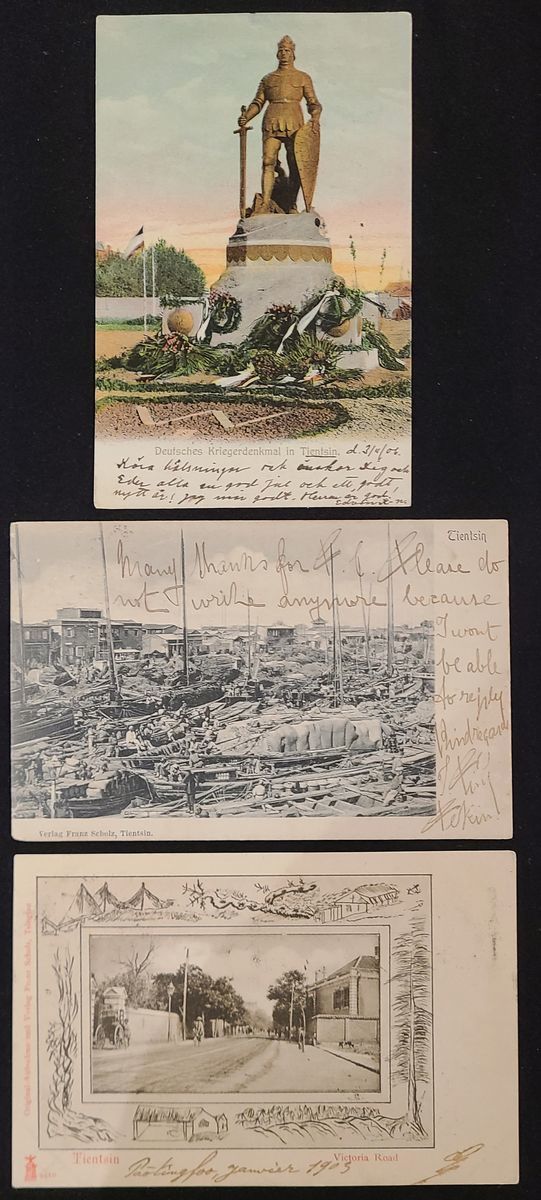 Deutsches Kriegerdenkmal in Tientsin. d. 3/11 06.
Kära hälsningar och önskar Dig och
Eder alla en god jul och ett godt
nytt år! Jag mår godt. Herren är god.
Tientsin
Many thanks for P. C. Please do
not write anymore because
I wont
be able
to reply
Kind regards
King
Pekin
Verlag Franz Scholz, Tientsin.
Original-Aufnahme und Verlag Franz Scholz, Tientsin
Tientsin
Victoria Road
Paotingfoo, janvier 1903